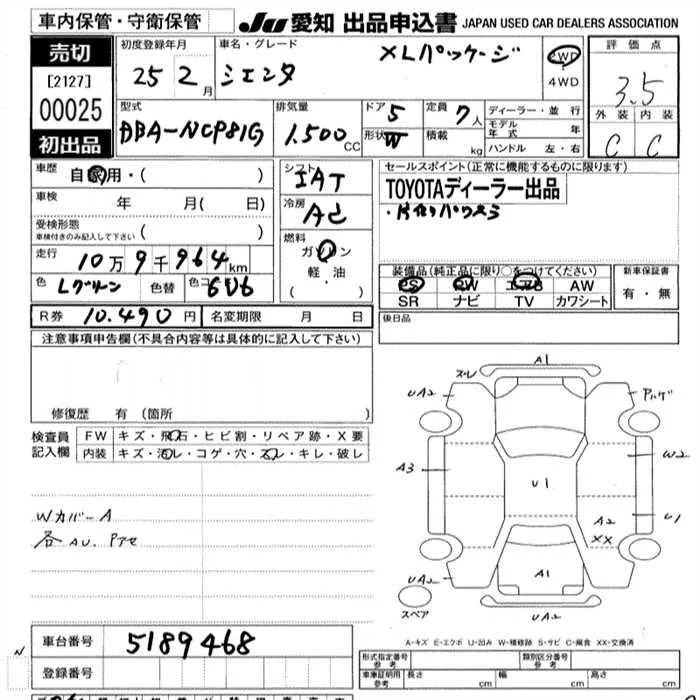 車内保管・守衛保管
JU 愛知 出品申込書 JAPAN USED CAR DEALERS ASSOCIATION
売切
[2127]
00025
初出品
初度登録年月
25 2月
車名・グレード
シエンタ XLパッケージ
2WD
4WD
評価点
3.5
外装 内装
C C
型式
DBA-NCP81G
排気量
1.500 CC
ドア 5
形状 W
定員 7人
積載 kg
ディーラー・並行
モデル年式 年
ハンドル 左・右
車歴 自家用・( )
車検 年 月( 日)
受検形態
車検付きのみ記入して下さい ( )
走行 10万9千964km
色 Lグリーン 色替 色コ 6U6
シフト IAT
冷房 AC
燃料
ガソリン
軽油
( ・ )
セールスポイント(正常に機能するものに限ります)
TOYOTAディーラー出品
・片側パワスラ
装備品(純正品に限り○をつけてください)
PS PW エアB AW
SR ナビ TV カワシート
新車保証書
有・無
R券 10.490円 名変期限 月 日
後日品
注意事項申告欄(不具合内容等は具体的に記入して下さい)
修復歴 有(箇所 )
検査員記入欄
FW キズ・飛石・ヒビ割・リペア跡・X要
内装 キズ・汚レ・コゲ・穴・スレ・キレ・破レ
WカバーA
各AU. Pアセ
A1
スレ
UA2
アルゲ
A3
W2
U1
U1
A2
XX
UA2
A1
UA2
スペア
A-キズ E-エクボ U-凹み W-補修跡 S-サビ C-腐食 XX-交換済
車台番号 5189468
登録番号
N
形式指定番号 参考
類別区分番号 参考
車庫証明用 参考 長さ cm 幅 cm 高さ cm